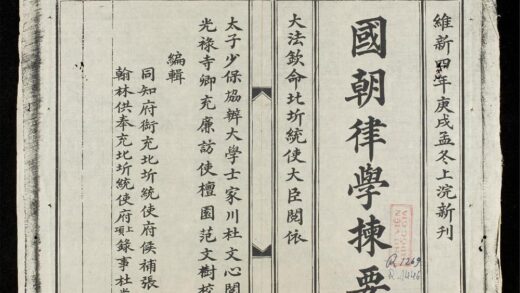 維新四年庚戌孟冬上浣新刊
國朝律學揀要
大法欽命北圻統使大臣閱依
太子少保協辦大學士家川杜文心閱
光祿寺卿充廉訪使檀園范文樹校
編輯
同知府銜充北圻統使府候補張
翰林供奉充北圻統使府上項錄事杜
R.1269
R.1446